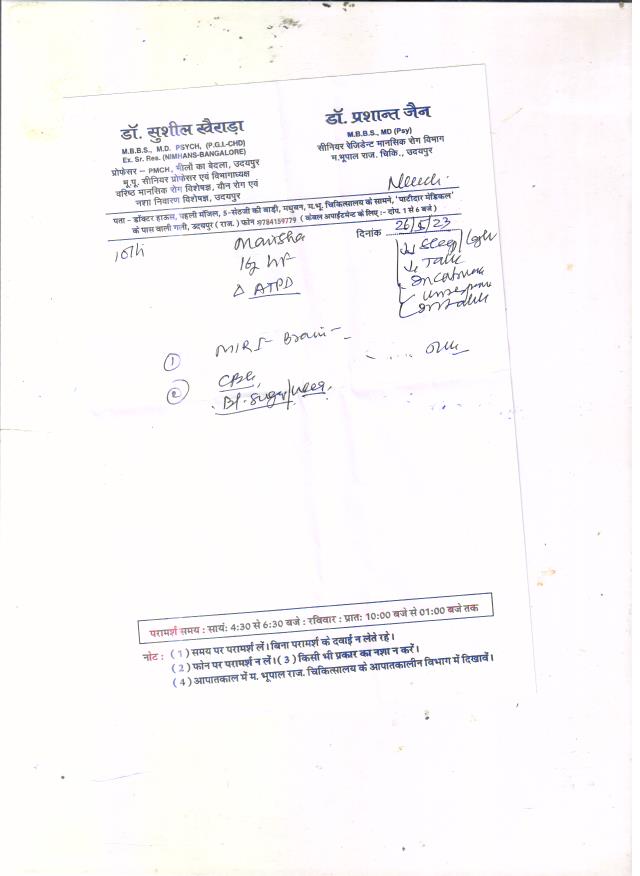 डॉ. सुशील खैराड़ा
M.B.B.S., M.D. PSYCH, (P.G.I.-CHD)
Ex. Sr. Res. (NIMHANS-BANGALORE)
प्रोफेसर – PMCH, भीलों का बेदला, उदयपुर
भू.पू. सीनियर प्रोफेसर एवं विभागाध्यक्ष
वरिष्ठ मानसिक रोग विशेषज्ञ, यौन रोग एवं
नशा निवारण विशेषज्ञ, उदयपुर
डॉ. प्रशान्त जैन
M.B.B.S., MD (Psy)
सीनियर रेजिडेन्ट मानसिक रोग विभाग
म.भूपाल राज. चिकि., उदयपुर
पता - डॉक्टर हाऊस, पहली मंजिल, 8-सेठजी की बाड़ी, मधुबन, म.भू. चिकित्सालय के सामने, 'पाटीदार मेडिकल'
के पास वाली गली, उदयपुर ( राज. ) फोन :9784159779 ( केवल अपाईंटमेन्ट के लिए :- दोप. 1 से 6 बजे )
दिनांक 26/5/23
10th
Manisha
△ ATPD
↓ Sleep
↓ Talk
① MRI - Brain -
② CBC,
Bl. Sugar/Urea.
परामर्श समय : सायं: 4:30 से 6:30 बजे : रविवार : प्रात: 10:00 बजे से 01:00 बजे तक
नोट : ( 1 ) समय पर परामर्श लें। बिना परामर्श के दवाई न लेते रहे।
( 2 ) फोन पर परामर्श न लें। ( 3 ) किसी भी प्रकार का नशा न करें।
( 4 ) आपातकाल में म. भूपाल राज. चिकित्सालय के आपातकालीन विभाग में दिखावें।